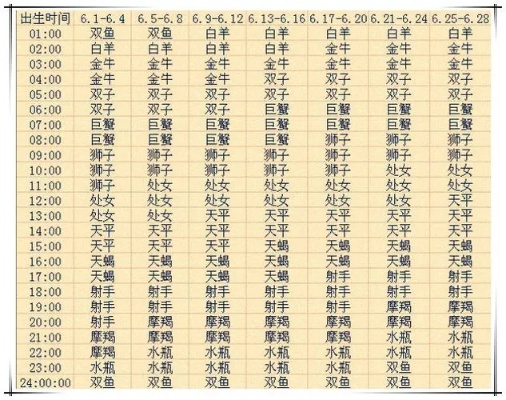 出生时间 6.1-6.4 6.5-6.8 6.9-6.12 6.13-6.16 6.17-6.20 6.21-6.24 6.25-6.28
01:00 双鱼 双鱼 白羊 白羊 白羊 白羊 白羊
02:00 白羊 白羊 白羊 白羊 金牛 金牛 金牛
03:00 金牛 金牛 金牛 金牛 金牛 金牛 金牛
04:00 金牛 金牛 金牛 双子 双子 双子 双子
05:00 双子 双子 双子 双子 双子 双子 双子
06:00 双子 双子 双子 巨蟹 巨蟹 巨蟹 巨蟹
07:00 巨蟹 巨蟹 巨蟹 巨蟹 巨蟹 巨蟹 巨蟹
08:00 巨蟹 巨蟹 巨蟹 巨蟹 狮子 狮子 狮子
09:00 狮子 狮子 狮子 狮子 狮子 狮子 狮子
10:00 狮子 狮子 狮子 狮子 狮子 处女 处女
11:00 狮子 处女 处女 处女 处女 处女 处女
12:00 处女 处女 处女 处女 处女 处女 天平
13:00 处女 处女 天平 天平 天平 天平 天平
14:00 天平 天平 天平 天平 天平 天平 天平
15:00 天平 天平 天平 天蝎 天蝎 天蝎 天蝎
16:00 天蝎 天蝎 天蝎 天蝎 天蝎 天蝎 天蝎
17:00 天蝎 天蝎 天蝎 天蝎 射手 射手 射手
18:00 射手 射手 射手 射手 射手 射手 射手
19:00 射手 射手 射手 射手 射手 摩羯 摩羯
20:00 射手 摩羯 摩羯 摩羯 摩羯 摩羯 摩羯
21:00 摩羯 摩羯 摩羯 摩羯 摩羯 水瓶 水瓶
22:00 摩羯 水瓶 水瓶 水瓶 水瓶 水瓶 水瓶
23:00 水瓶 水瓶 水瓶 水瓶 双鱼 双鱼 双鱼
24:00:00 双鱼 双鱼 双鱼 双鱼 双鱼 双鱼 双鱼